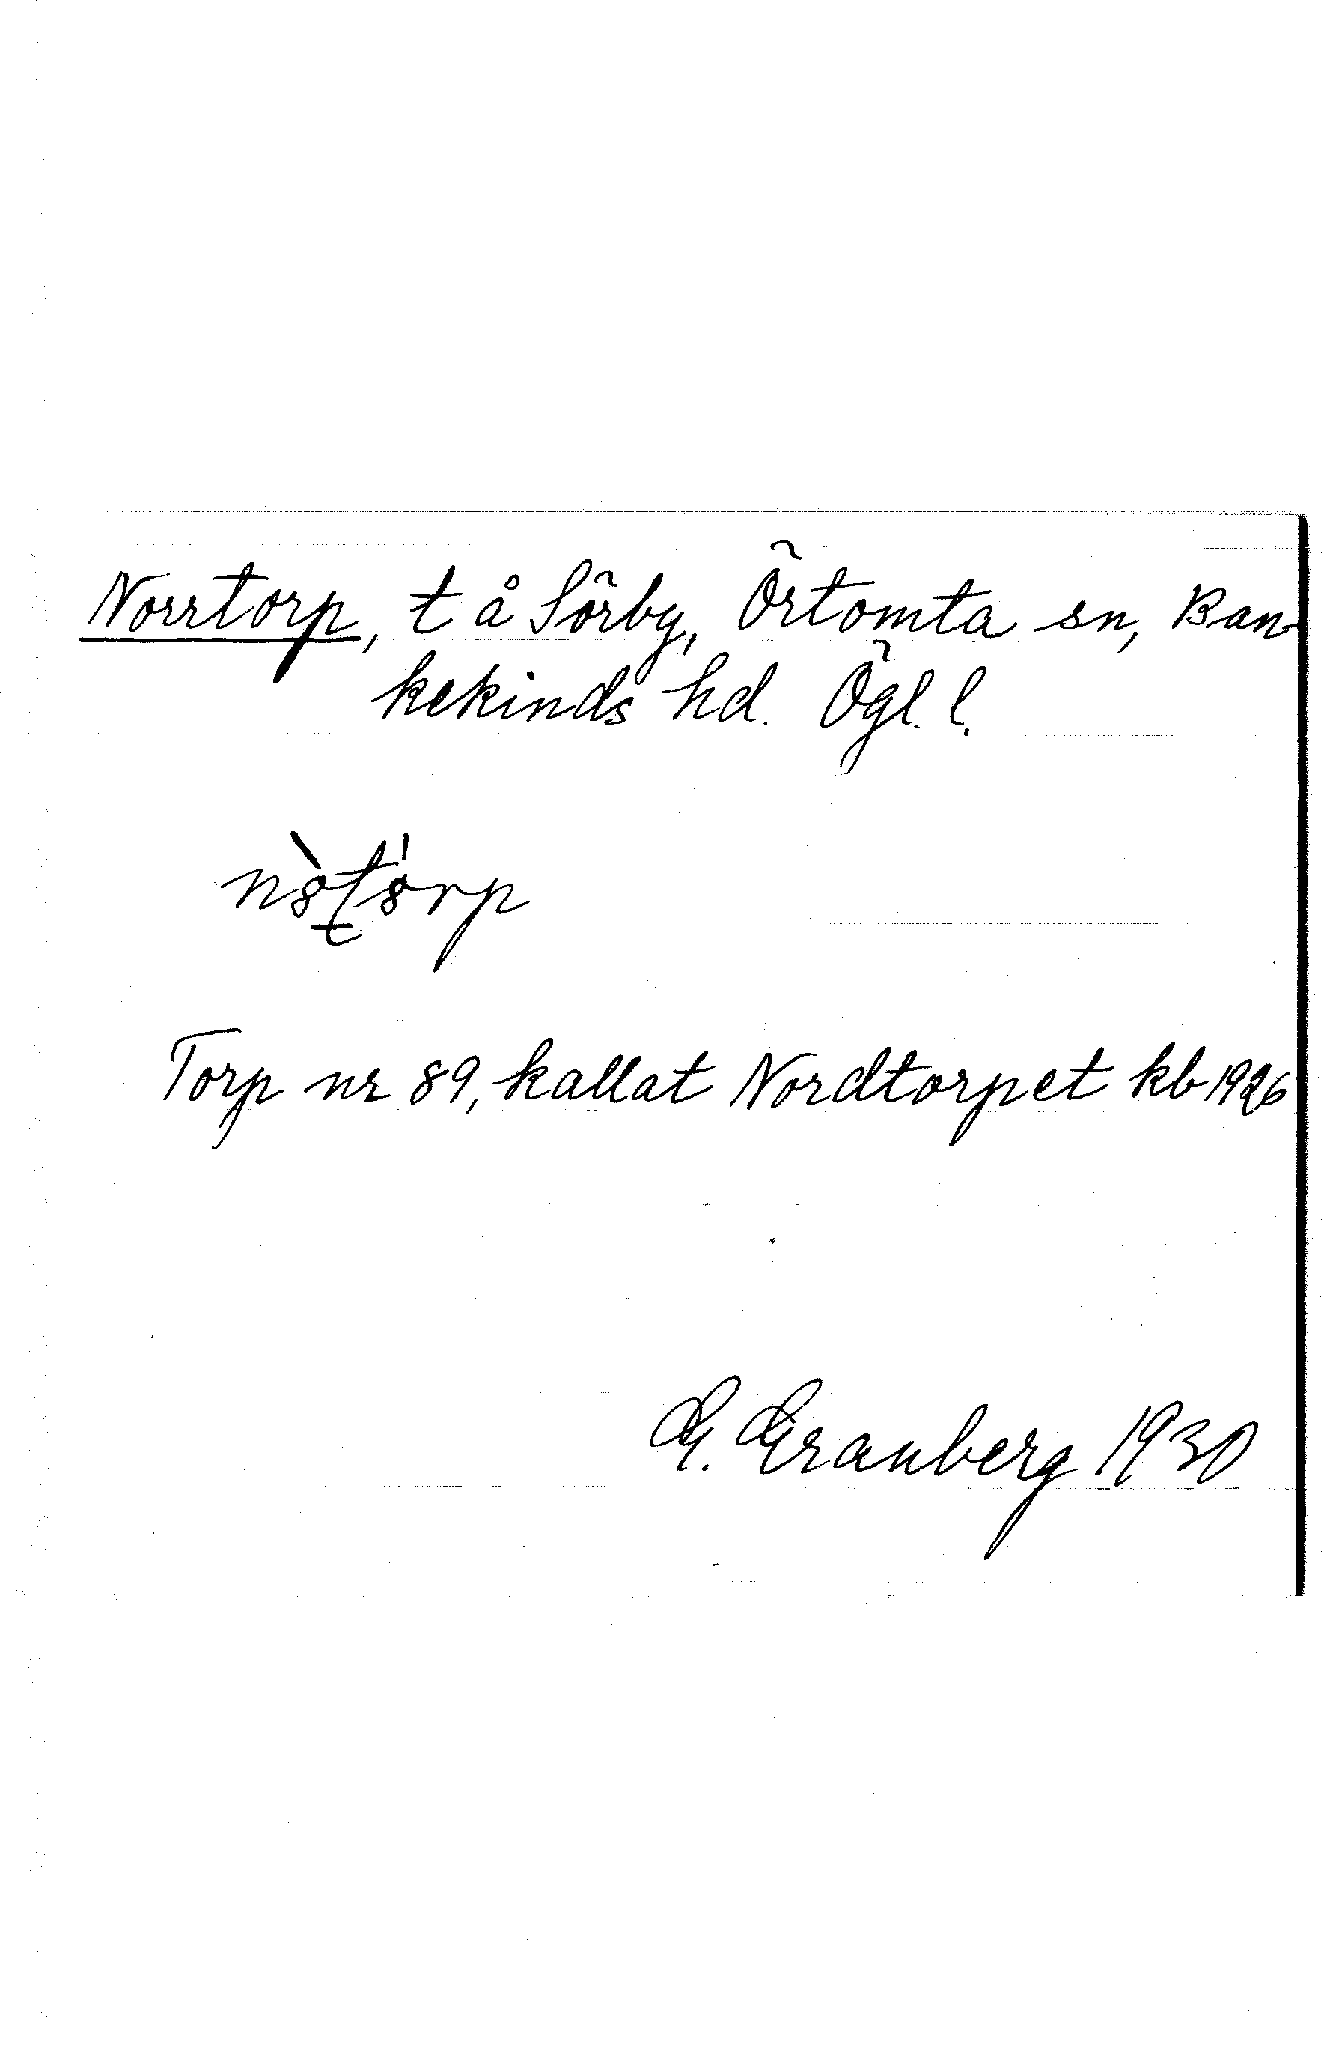 Norrtorp, t å Sörby, Örtomta sn, Ban-
kekinds hd. Ögl. l.
Torp nr 89, kallat Nordtorpet kb 1926
G. Granberg 1930